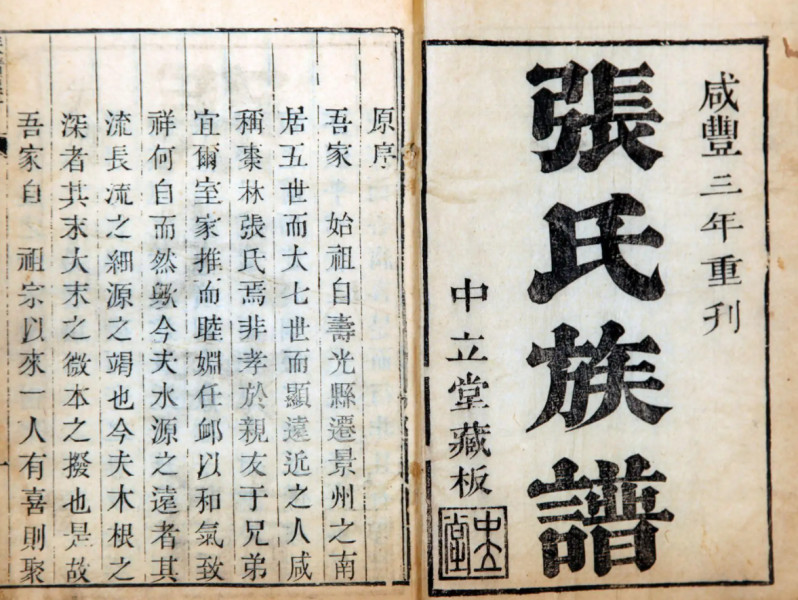 咸豐三年重刊
張氏族譜
中立堂藏板
中立堂
原序
吾家　始祖自壽光縣遷景州之南
居五世而大七世而顯遠近之人咸
稱棗林張氏焉非孝於親友于兄弟
宜爾室家推而睦婣任䘏以和氣致
祥何自而然歟今夫水源之遠者其
流長流之細源之竭也今夫木根之
深者其末大末之微本之撥也是故
吾家自　祖宗以來一人有喜則聚